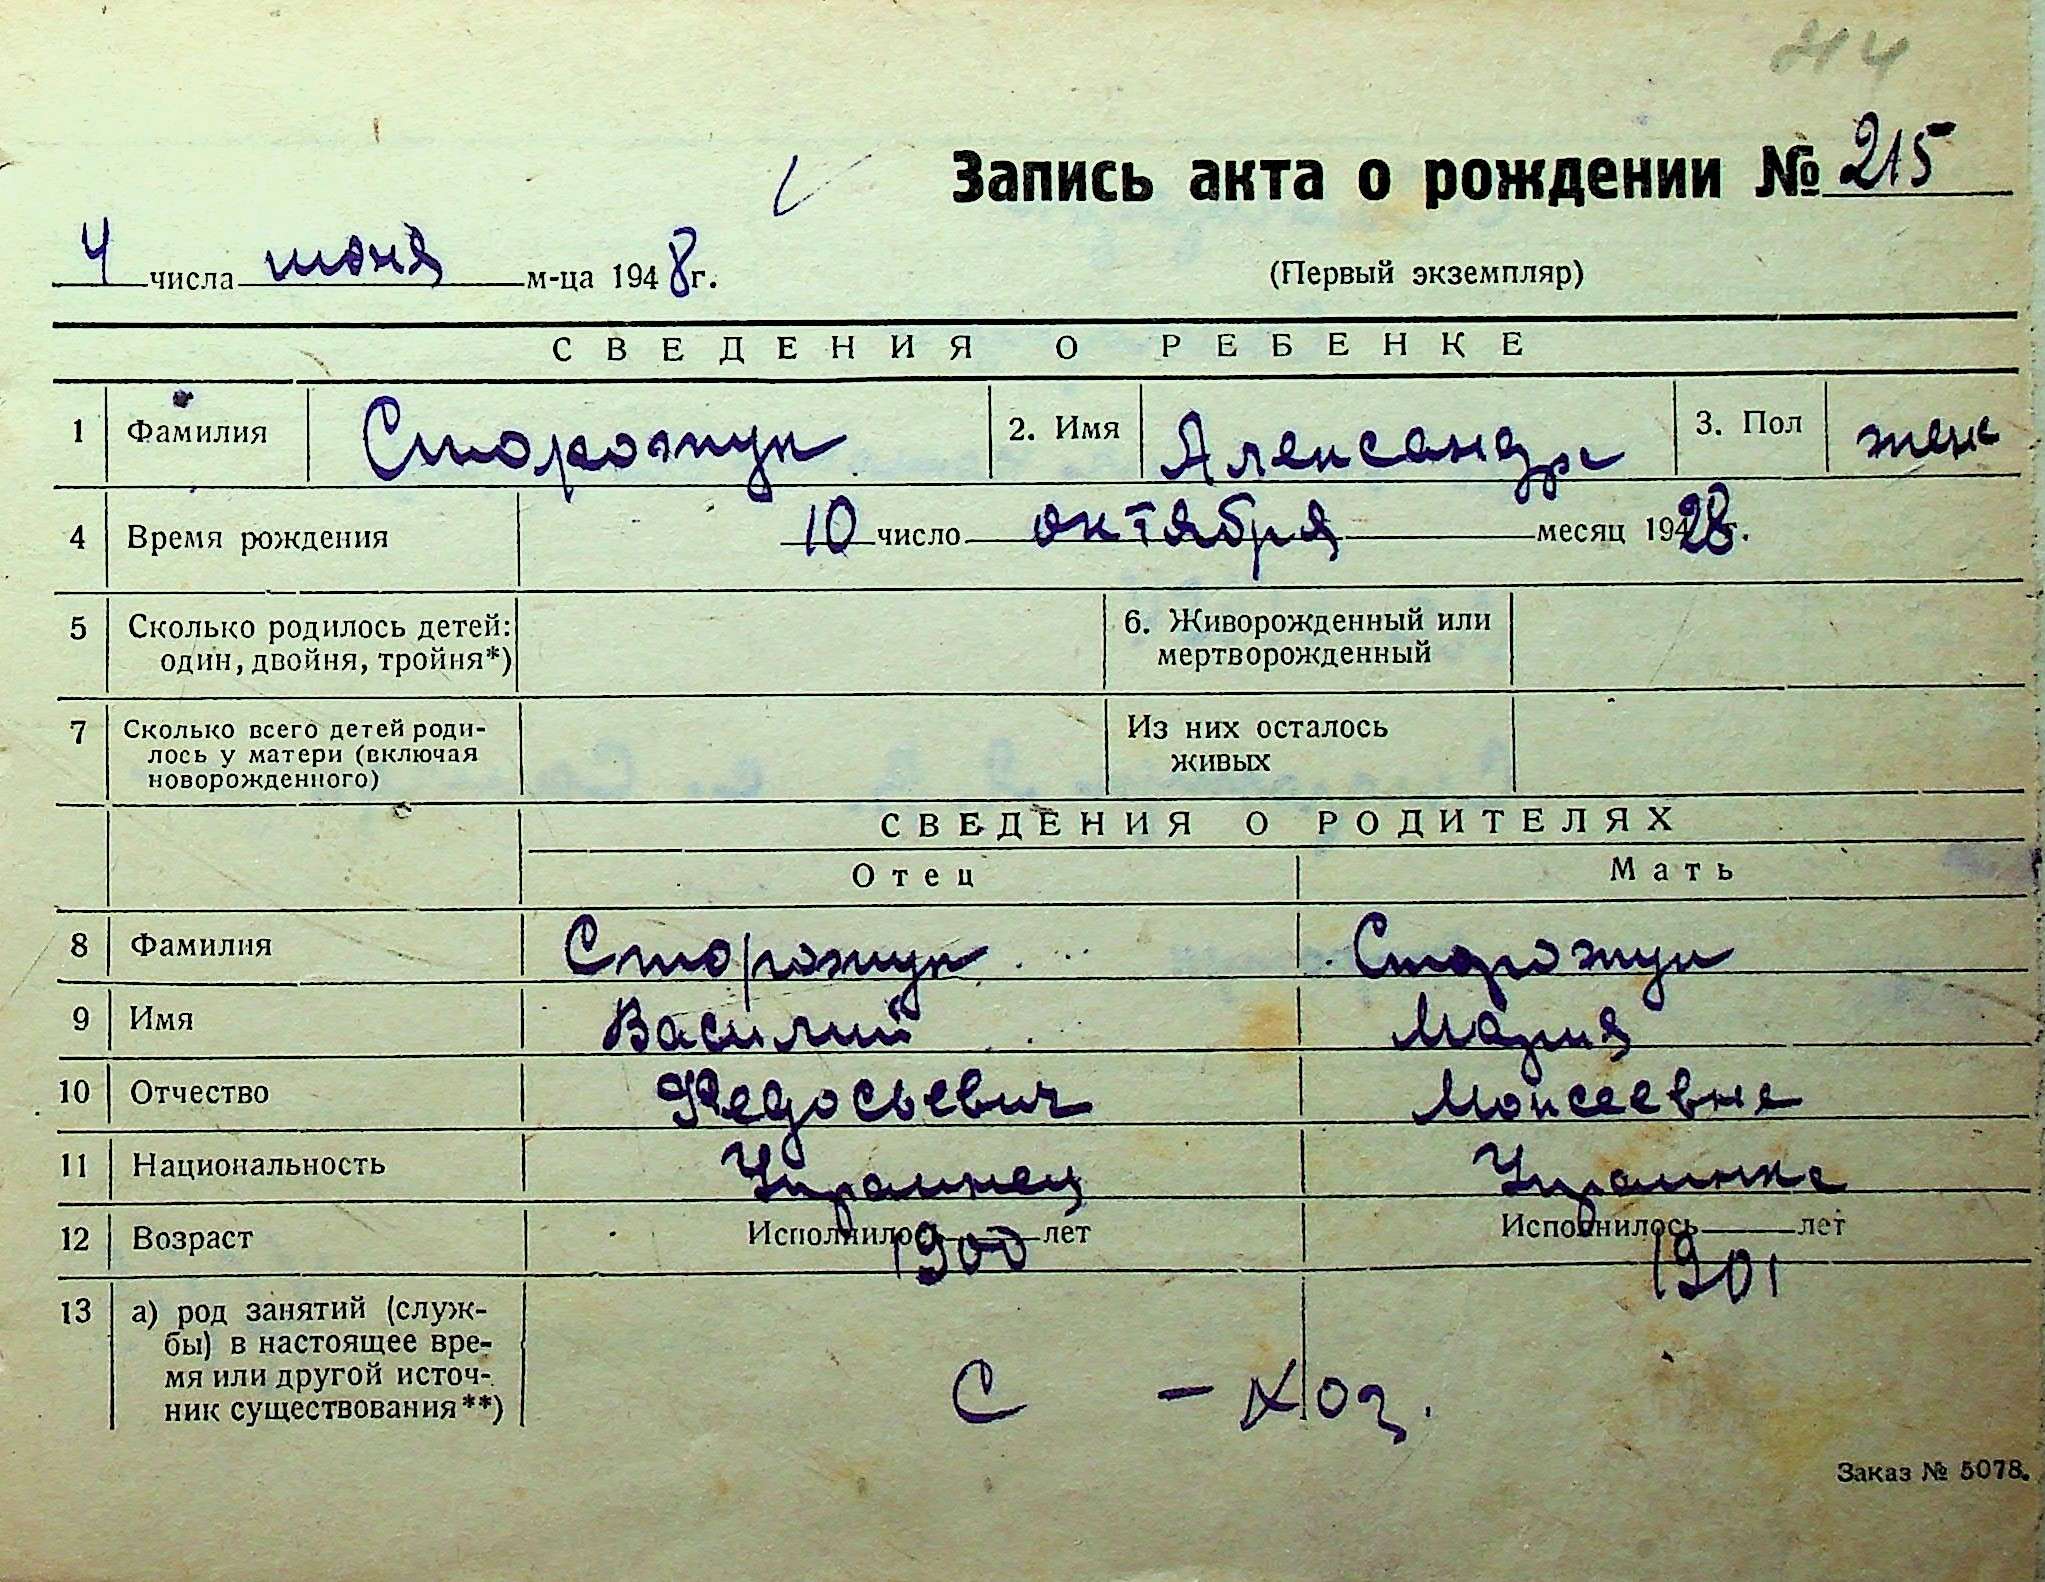 214
Запись акта о рождении № 215
4 числа июня м-ца 1948 г.
(Первый экземпляр)
СВЕДЕНИЯ О РЕБЕНКЕ
1 Фамилия Сторожук 2. Имя Александра 3. Пол жен
4 Время рождения 10 число октября месяц 1928 г.
5 Сколько родилось детей: 6. Живорожденный или
один, двойня, тройня*) мертворожденный
7 Сколько всего детей роди- Из них осталось
лось у матери (включая живых
новорожденного)
СВЕДЕНИЯ О РОДИТЕЛЯХ
Отец Мать
8 Фамилия Сторожук Сторожук
9 Имя Василий Мария
10 Отчество Федосьевич Моисеевна
11 Национальность Украинец Украинка
12 Возраст Исполнилось 1900 лет Исполнилось 1901 лет
13 а) род занятий (служ-
бы) в настоящее вре-
мя или другой источ-
ник существования**) С - хоз.
Заказ № 5078.